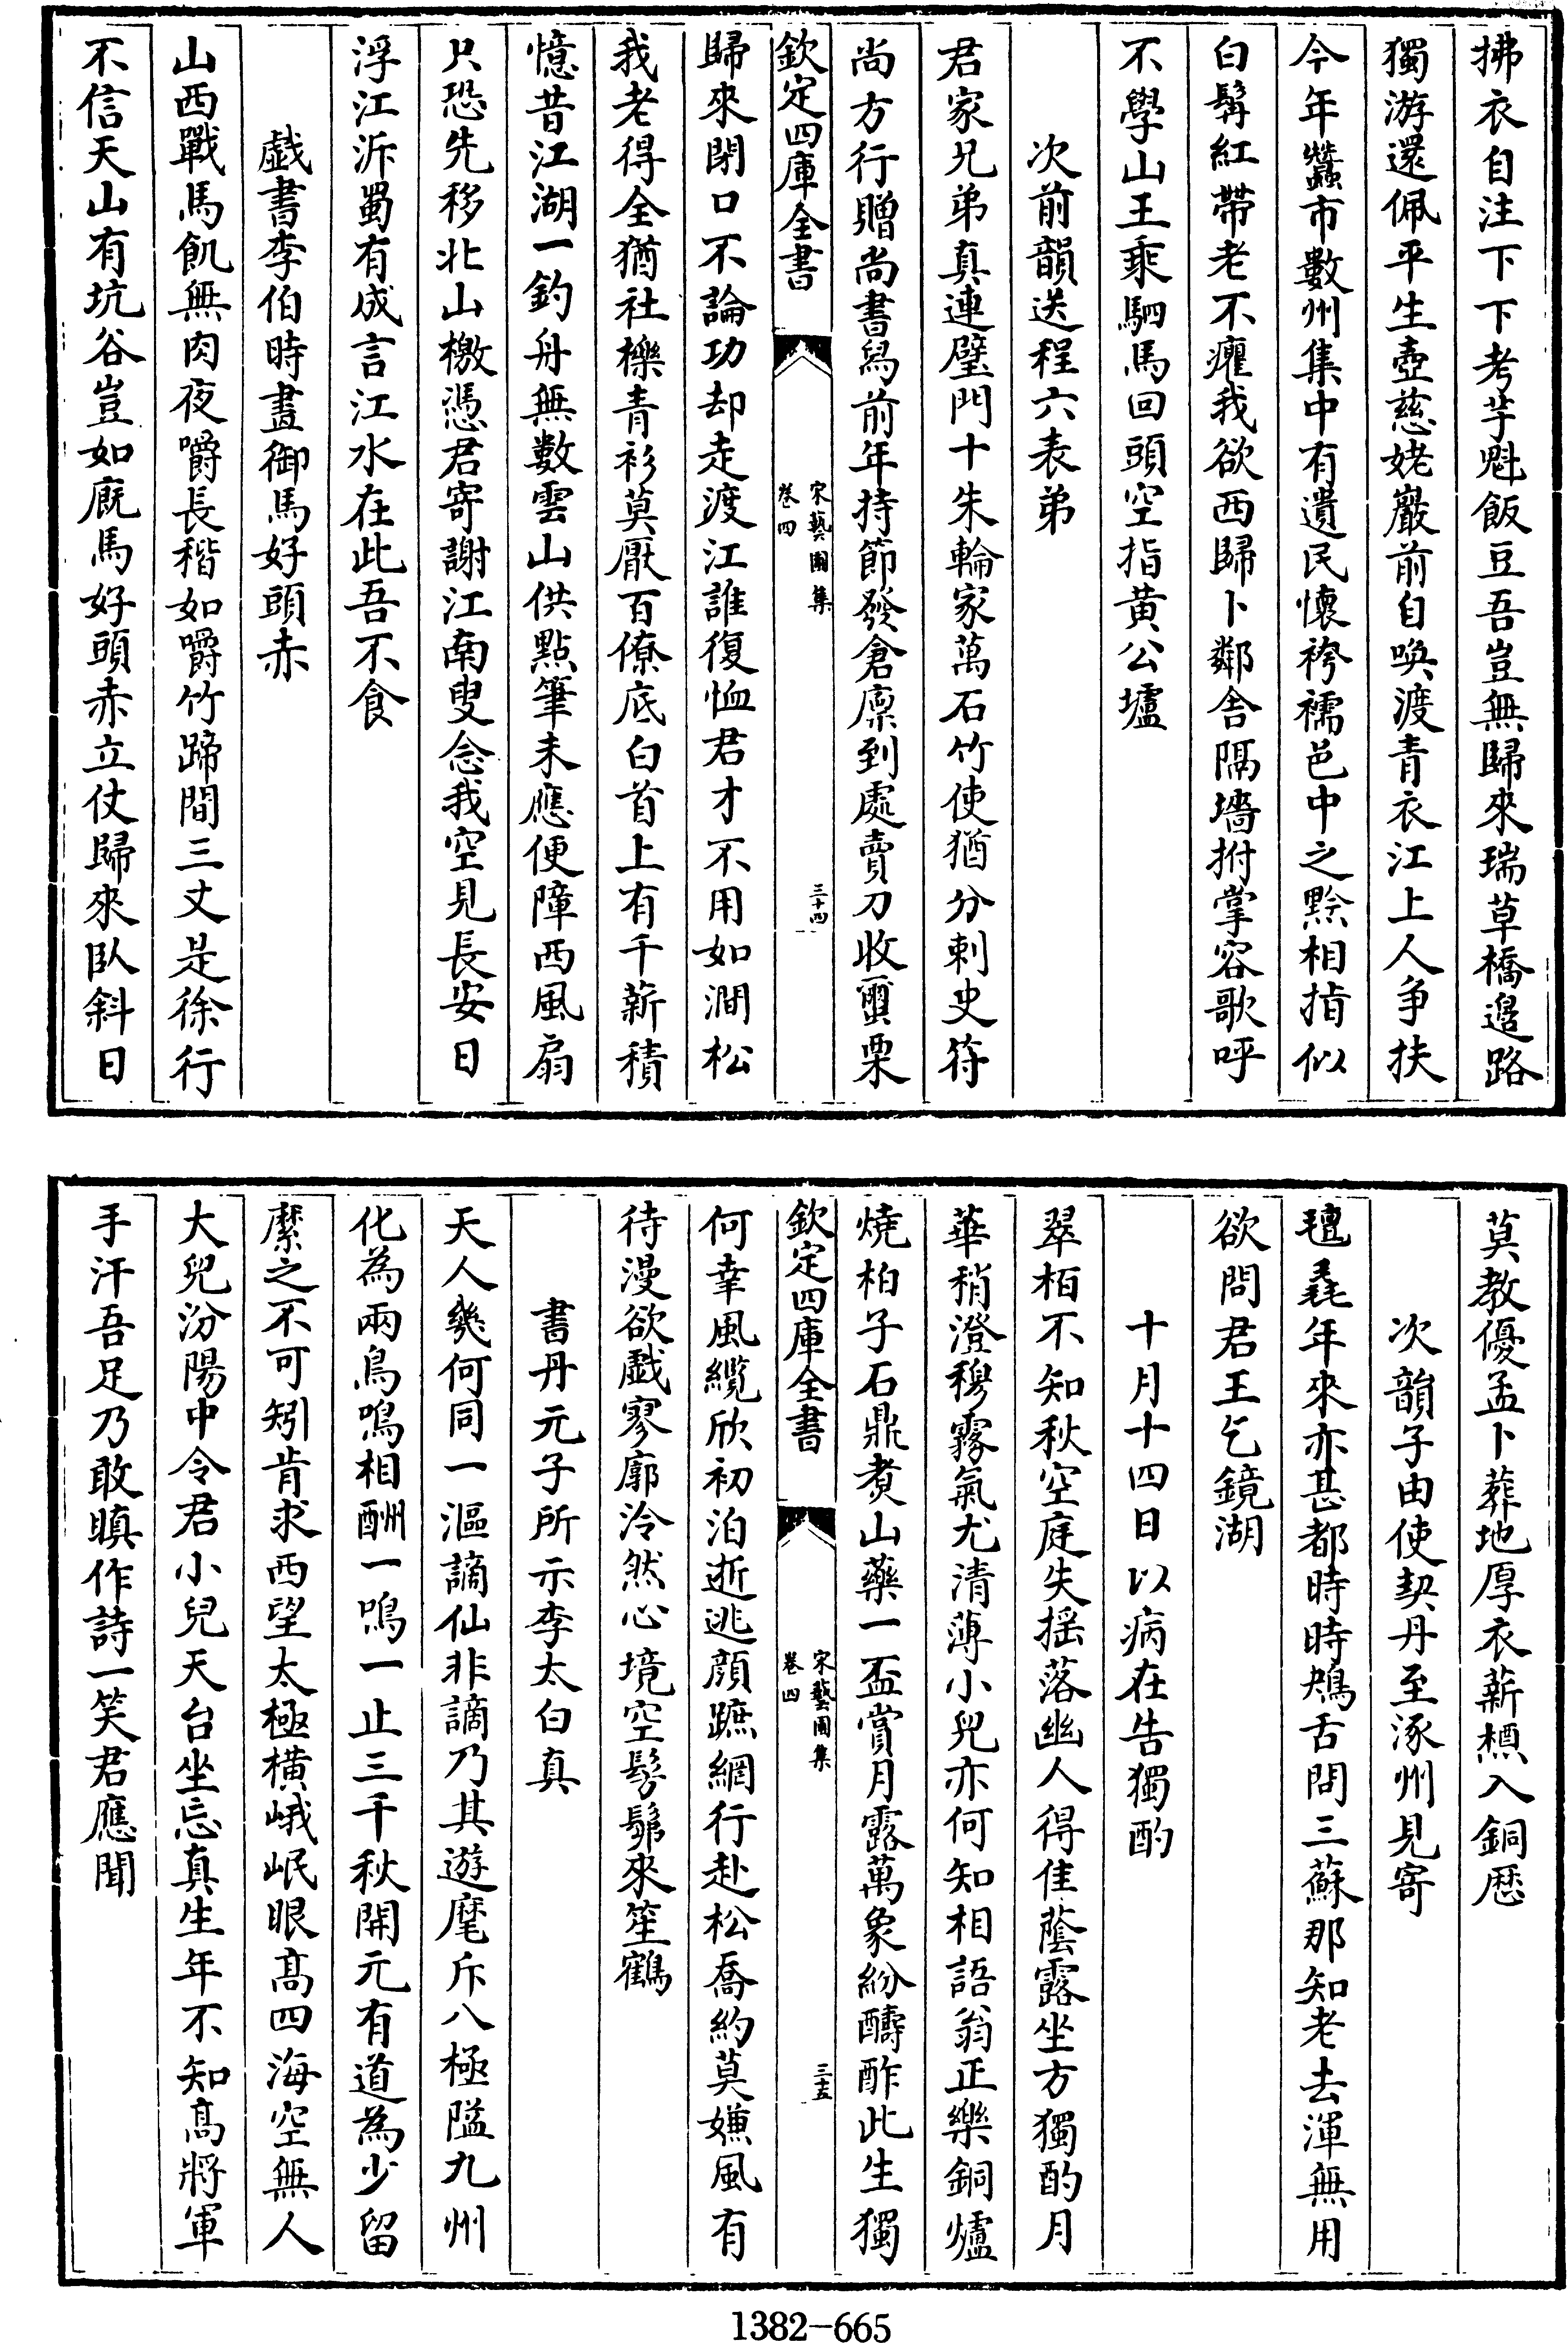 拂衣自注下下考芋魁飯豆吾豈無歸來瑞草橋邉路
獨游還佩平生壺慈姥巖前自喚渡青衣江上人争扶
今年蠶市數州集中有遺民懷袴襦邑中之黔相指似
白髯紅帶老不癯我欲西歸卜鄰舍隔墻拊掌容歌呼
不學山王乘駟馬回頭空指黄公壚
次前韻送程六表弟
君家兄弟真連璧門十朱輪家萬石竹使猶分刺史符
尚方行贈尚書舄前年持節發倉廪到處賣刀收蠒栗
欽定四庫全書
宋藝圃集
卷四
三十四
歸來閉口不論功却走渡江誰復恤君才不用如澗松
我老得全猶社櫟青衫莫厭百僚底白首上有千薪積
憶昔江湖一釣舟無數雲山供點筆未應便障西風扇
只恐先移北山檄憑君寄謝江南叟念我空見長安日
浮江泝蜀有成言江水在此吾不食
戲書李伯時畫御馬好頭赤
山西戰馬飢無肉夜嚼長稭如嚼竹蹄間三丈是徐行
不信天山有坑谷豈如廐馬好頭赤立仗歸來臥斜日
莫教優孟卜葬地厚衣薪槱入銅歴
次韻子由使契丹至涿州見寄
氊毳年來亦甚都時時鴂舌問三蘇那知老去渾無用
欲問君王乞鏡湖
十月十四日以病在告獨酌
翠栢不知秋空庭失揺落幽人得佳蔭露坐方獨酌月
華稍澄穆霧氣尤清薄小兒亦何知相語翁正樂銅爐
燒柏子石鼎煑山藥一盃賞月露萬象紛醻酢此生獨
欽定四庫全書
宋藝圃集
卷四
三十五
何幸風纜欣初泊逝逃顔蹠網行赴松喬約莫嫌風有
待漫欲戲寥廓泠然心境空髣髴來笙鶴
書丹元子所示李太白真
天人幾何同一漚謫仙非謫乃其遊麾斥八極隘九州
化為兩鳥鳴相酬一鳴一止三千秋開元有道為少留
縻之不可矧肯求西望太極横峨岷眼髙四海空無人
大兒汾陽中令君小兒天台坐忘真生年不知髙將軍
手汙吾足乃敢瞋作詩一笑君應聞
1382-665